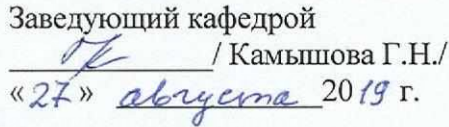 Заведующий кафедрой
/ Камышова Г.Н./
«27» августа 2019 г.